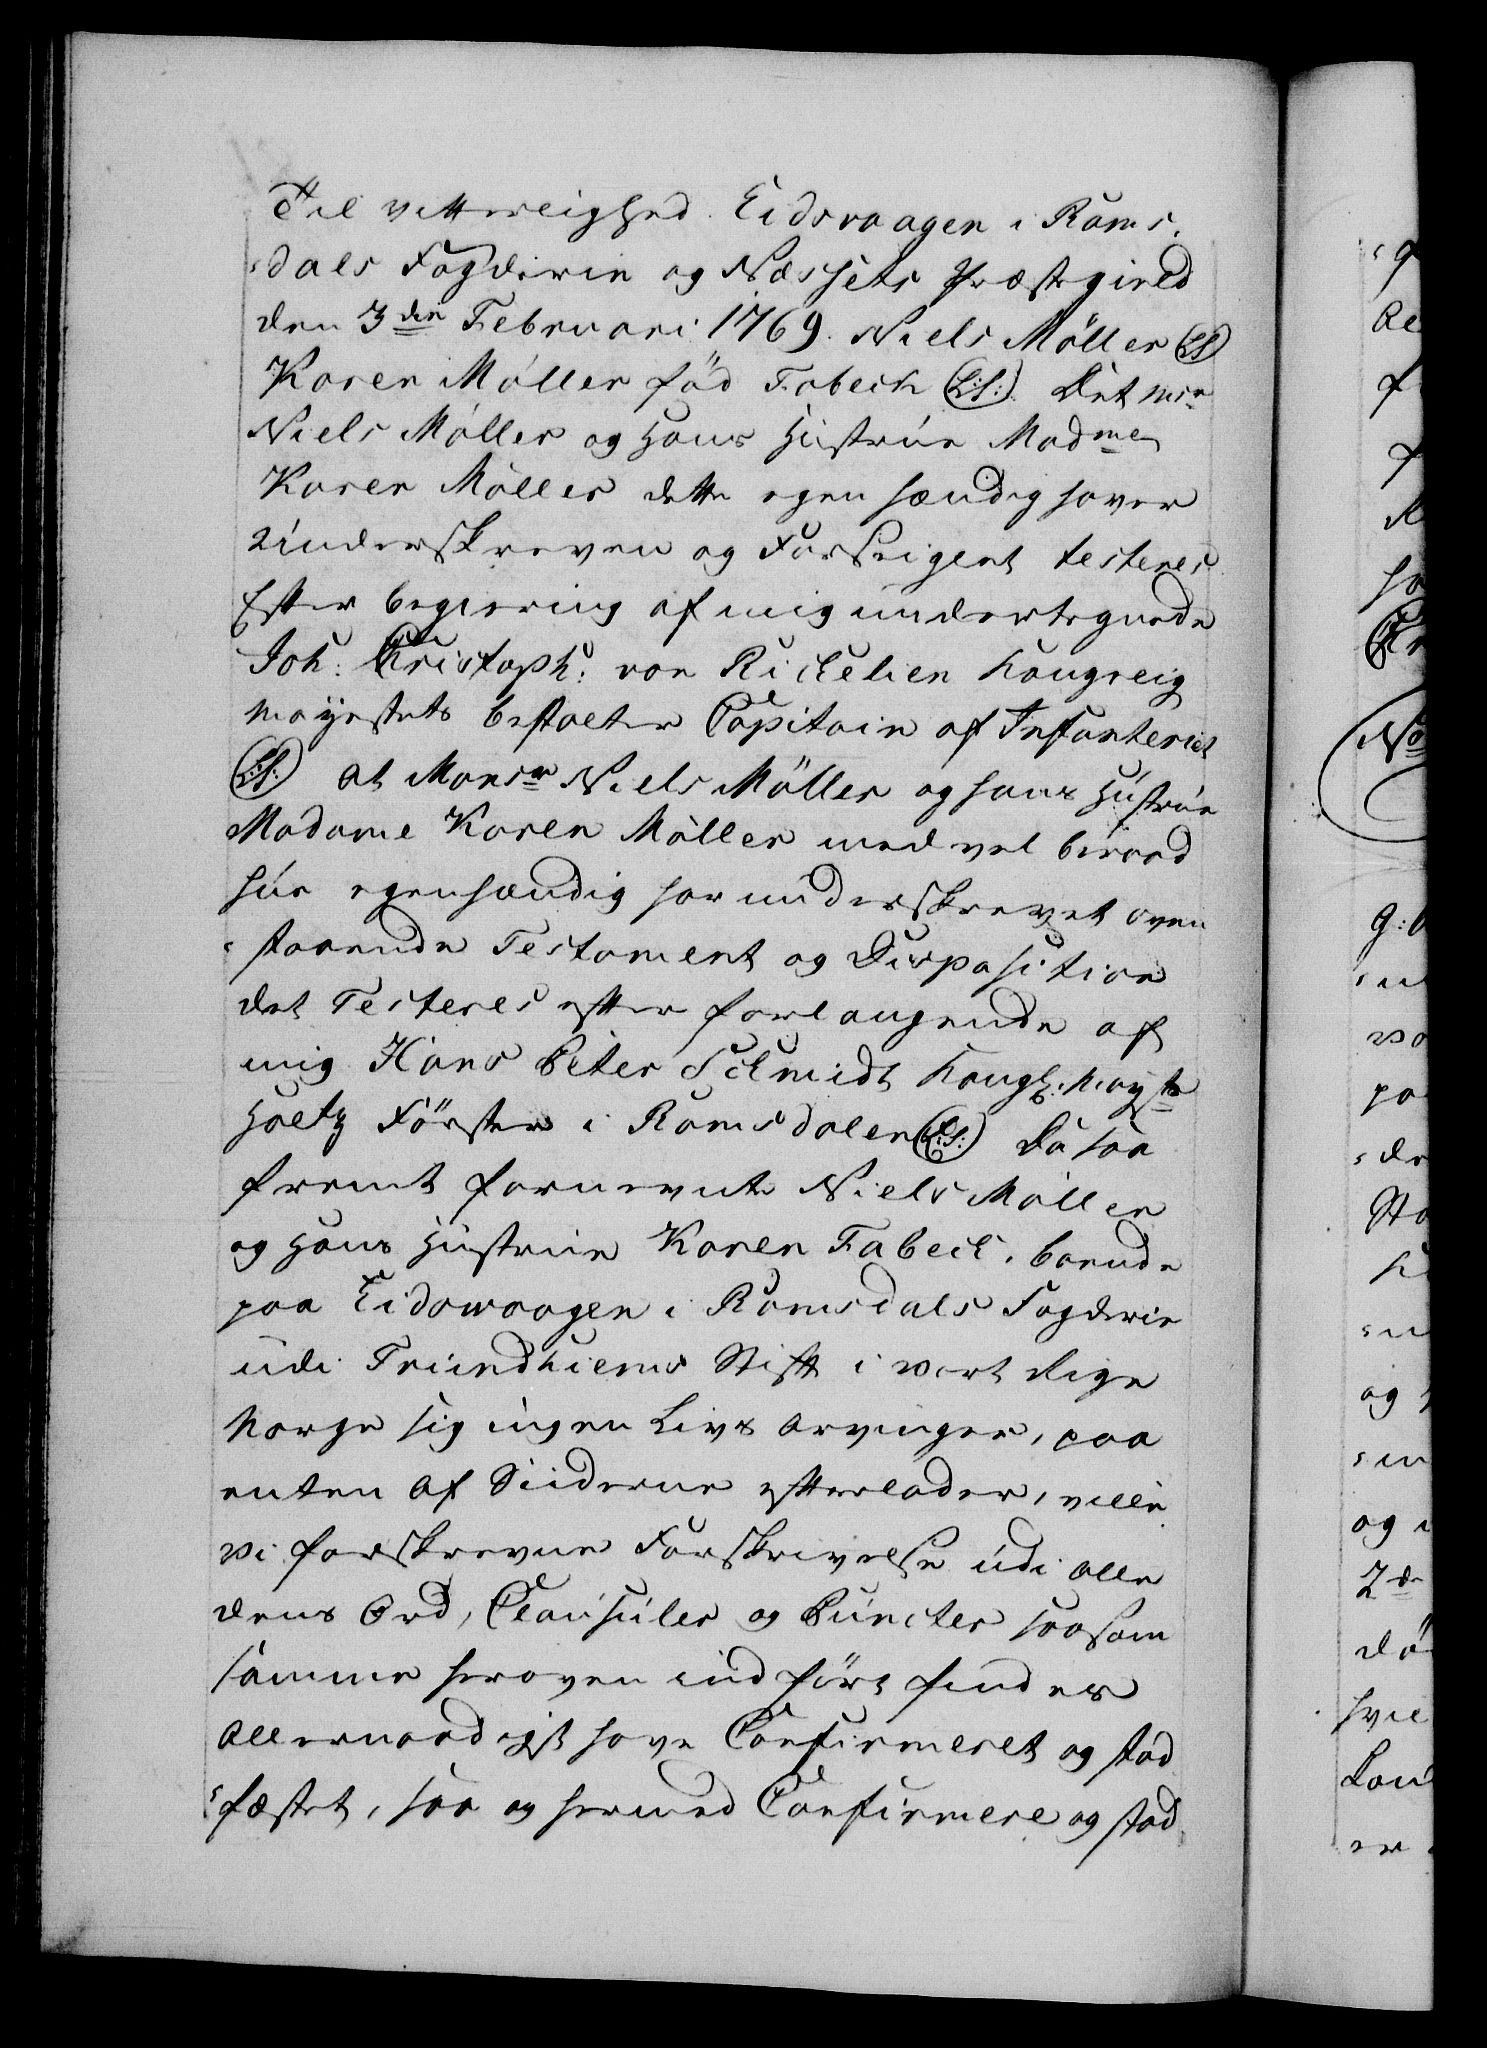 Til vitterlighed. Eidsvaagen i Roms,
„dals Fogderie og Næssets Præstegield
den 3die Februari 1769. Niels Möller (LS)
Karen Möller fød Fabech (L:S:). Det Msr
Niels Möller og Hans Hustrue Madme
Karen Möller dette egenhændig haver
underskreven og Forseiglet testeres
Efter begiering af mig undertegnede
Joh: Christoph: von Richelien Kongelig
Mayestets bestalter Capitain af Infanteriet
(L:S:) At Monsr Niels Möller og hans Hustrue
Madame Karen Möller med vel beraad
hue egenhændig har underskrevet oven
„staaende Testament og Disposition
det Testeres efter forlangende af
mig Hans Peter Schmidt Kongl. Mayts
Holtz Förster i Romsdalen (L:S:) Da saa
fremt fornevnte Niels Möller
og Hans Hustrue Karen Fabech, boende
paa Eidswaagen i Romsdals Fogderie
udi Trundhiems Stift i vort Rige
Norge sig ingen Livs Arvinger, paa
enten af Siiderne efterlader, ville
vi forskrevne Forskrivelse udi alle
dens Ord, Clausuler og Puncter saasom
samme heroven indført findes
Allernaadigst have Confirmeret og stad
„fæstet, saa og hermed Confirmere og stad